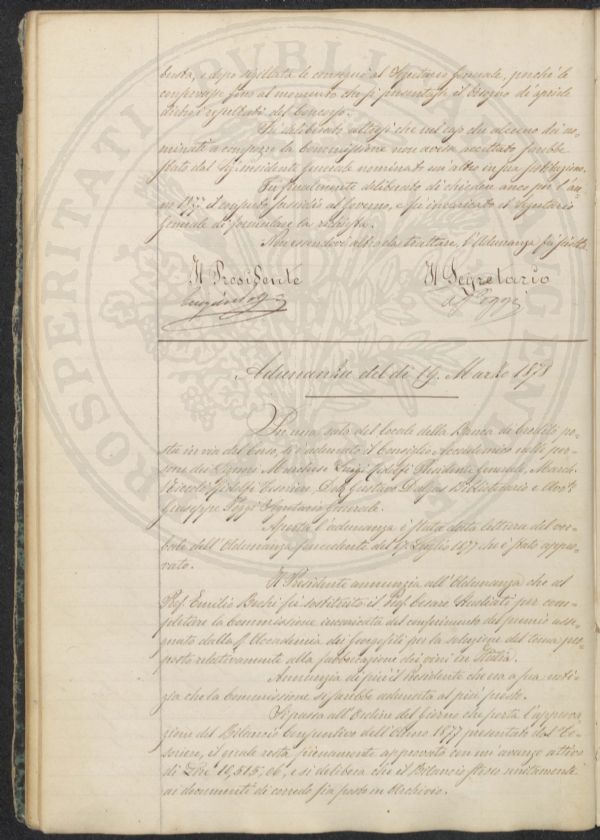 busta, e dopo sigillata le consegnò al Segretario Generale, perché le
conservasse fino al momento che si presentasse il bisogno di aprirle
dietro i resultati del Concorso.
Fu deliberato altresì che nel caso che alcuno dei no-
minati a comporre la Commissione non avesse accettato sarebbe
stato dal Presidente Generale nominato un'altro in sua sostituzione.
Fu finalmente deliberato di chiedere anco per l'an-
no 1877 il consueto sussidio al Governo, e fu incaricato il Segretario
Generale di formulare la richiesta.
Non essendovi altro da trattare, l'Adunanza fu sciolta
Il Presidente
Il Segretario
Adunanza del dì 19. Marzo 1878
In una sala del locale della Banca di Credito po-
sta in via del Corso, si è adunato il Consiglio Accademico nelle per-
sone dei Signori Marchese Luigi Ridolfi Presidente Generale, March.
Niccolò Ridolfi Tesoriere, Dott. Gustavo Dalgas Bibliotecario e Avv.
Giuseppe Poggi Segretario Generale.
Aperta l'adunanza è stata data lettura del ver-
bale dell'Adunanza precedente del 17 Luglio 1877 che è stato appro-
vato.
Il Presidente annunzia all'Adunanza che al
Prof. Emilio Bechi fu sostituito il Prof. Cesare Studiati per com-
pletare la Commissione incaricata del conferimento del premio asse-
gnato dalla R. Accademia dei Georgofili per la soluzione del tema pro-
posto relativamente alla fabbricazione dei vini in Italia.
Annunzia di più il Presidente che era a sua noti-
zia che la Commissione si sarebbe adunata al più presto.
Si passa all'Ordine del Giorno che porta l'approva-
zione del Bilancio Consuntivo dell'Anno 1877 presentato dal Te-
soriere, il quale resta pienamente approvato con un'avanzo attivo
di Lire 16,515,06, e si delibera che il Bilancio stesso unitamente
ai documenti di corredo sia posto in Archivio.
PROSPERITATI PUBLICAE